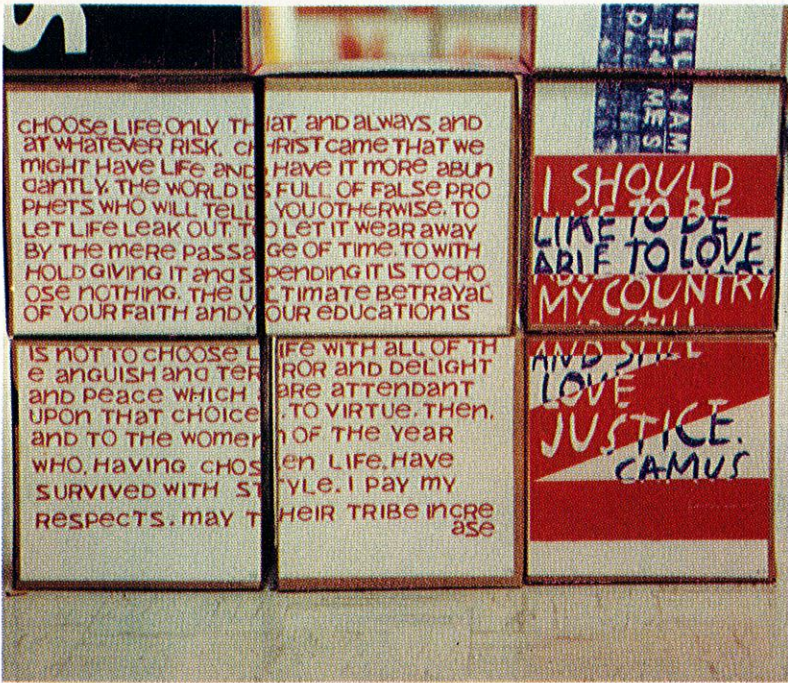 S
CHOOSE LIFE. ONLY THAT AND always, AND
AT WHATEVER RISK. CHRIST came THAT we
MIGHT Have LIFE AND Have IT MORE ABUN
dantLY. THE WORLD IS FULL OF False PRO
PHETS WHO WILL TELL YOU OTHERWISE. TO
LET LIFE LEAK OUT, TO LET IT WEAR AWAY
BY THE mere PASSAGE OF TIME, TO WITH
HOLD GIVING IT and SPENDING IT IS TO CHO
OSE NOTHING. THE ULTIMATE BETRAYAL
OF YOUR FAITH and YOUR education IS
IS NOT TO CHOOSE LIFE WITH ALL OF TH
e anguish and TERROR and DELIGHT
and Peace WHICH are attendant
UPON THAT CHOICE. TO VIRTUE. THen,
and TO THe women OF THE Year
WHO, Having CHOSen LIFE, Have
SURVIVED WITH STYLE. I Pay my
Respects. may THeir TRIBE INCRE
ase
I SHOULD
LIKE TO BE
ABLE TO LOVE
MY COUNTRY
AND STILL
LOVE
JUSTICE.
CAMUS